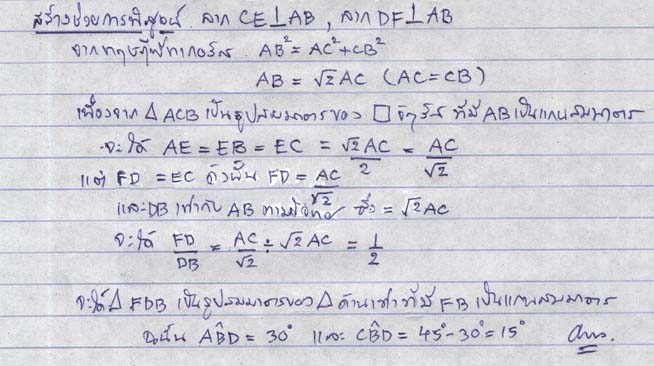 สร้างช่วยการพิสูจน์ ลาก CE⊥AB , ลาก DF⊥AB
จากทฤษฎีพีทากอรัส AB² = AC² + CB²
AB = √2 AC (AC = CB)
เนื่องจาก Δ ACB เป็นรูปสมมาตรของ □ จัตุรัส ที่มี AB เป็นแกนสมมาตร
จะได้ AE = EB = EC = √2 AC / 2 = AC / √2
แต่ FD = EC ดังนั้น FD = AC / √2
และ DB เท่ากับ AB ตามโจทย์ ซึ่ง = √2 AC
จะได้ FD / DB = AC / √2 ÷ √2 AC = 1 / 2
จะได้ Δ FDB เป็นรูปสมมาตรของ Δ ด้านเท่า ที่มี FB เป็นแกนสมมาตร
ฉะนั้น AB̂D = 30° และ CB̂D = 45° - 30° = 15° Ans.